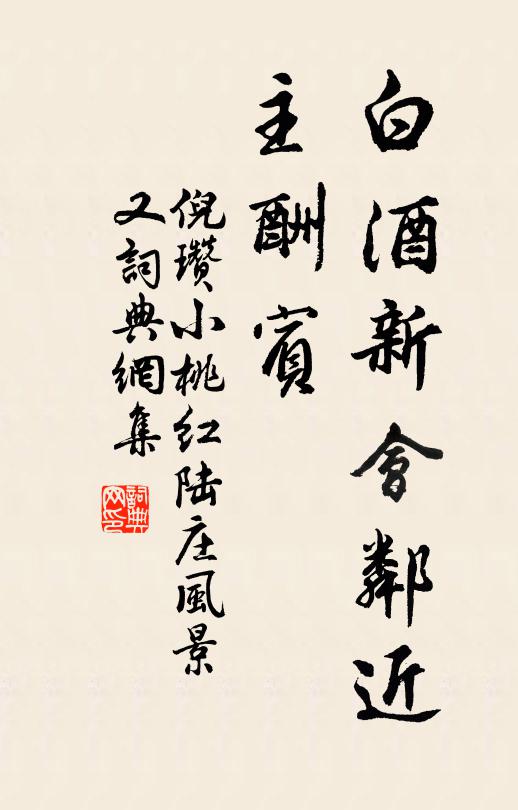 白酒新會鄰近
主酬賓
倪瓚小桃红陆庄風景
又詞典網集
詞典
网印